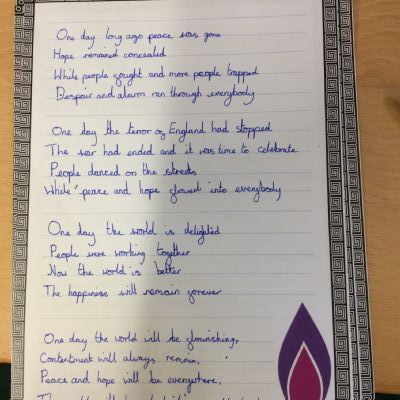 One day long ago peace was gone
Hope remained concealed
While people fought and more people trapped
Despair and alarm ran through everybody
One day the terror of England had stopped
The war had ended and it was time to celebrate
People danced on the streets
While peace and hope glowed into everybody
One day the world is delighted
People were working together
Now the world is better
The happiness will remain forever
One day the world will be flourishing,
Contentment will always remain,
Peace and hope will be everywhere,